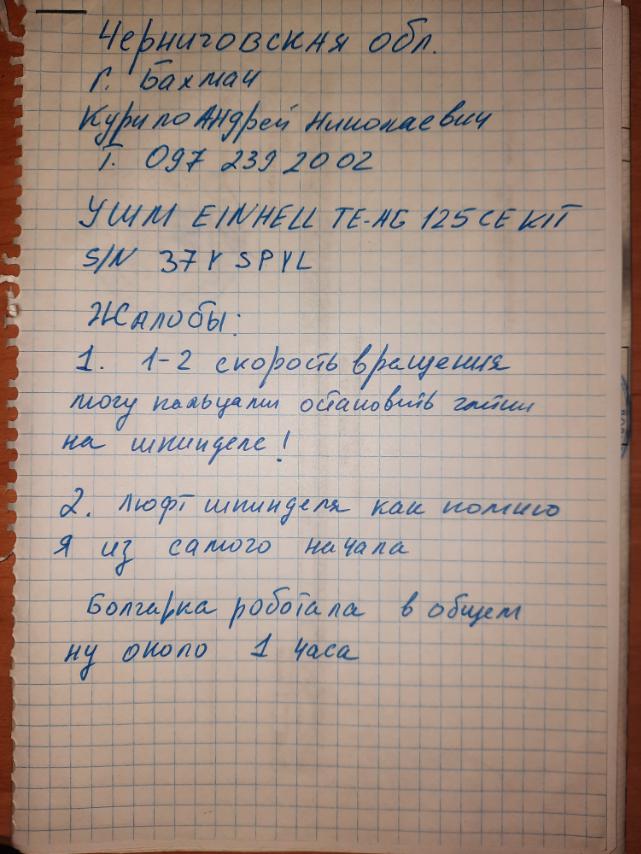 Черниговская обл.
г. Бахмач
Курило Андрей Николаевич
т. 097 239 20 02
УШМ EINHELL TE-AG 125 CE KIT
S/N 37Y SPYL
Жалобы:
1. 1-2 скорость вращения
могу пальцами остановить гайки
на шпинделе!
2. Люфт шпинделя как помню
я из самого начала
Болгарка роботала в общем
ну около 1 часа